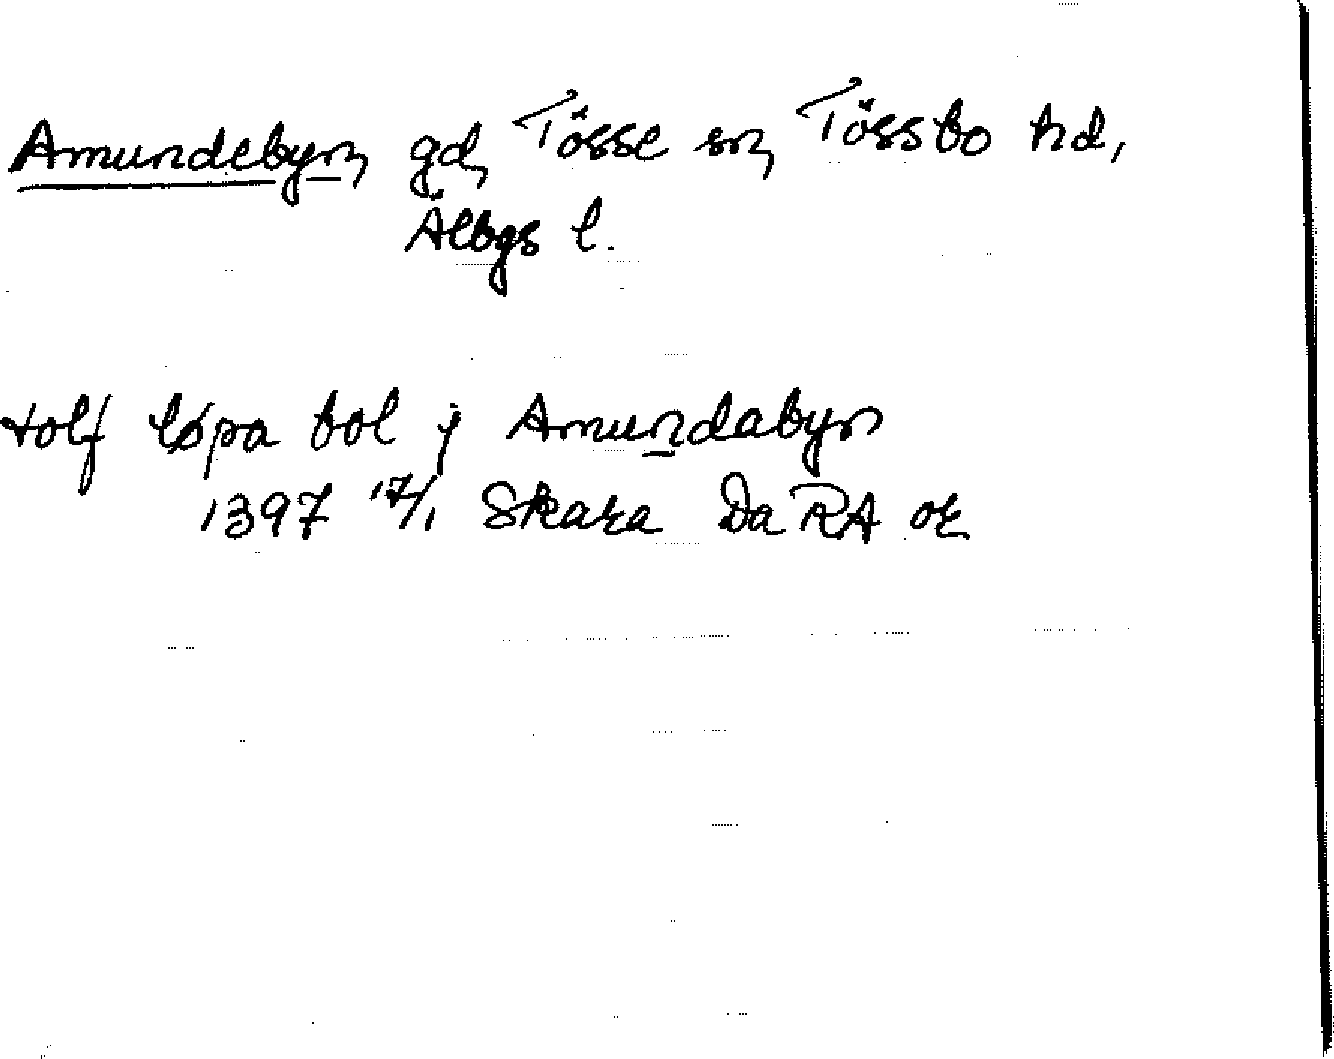 Amundebyn, gd, Tösse sn, Tössbo hd,
Älbgs l.
tolf løpa bol j Amundabyn
1397 17/1 Skara Da RA or